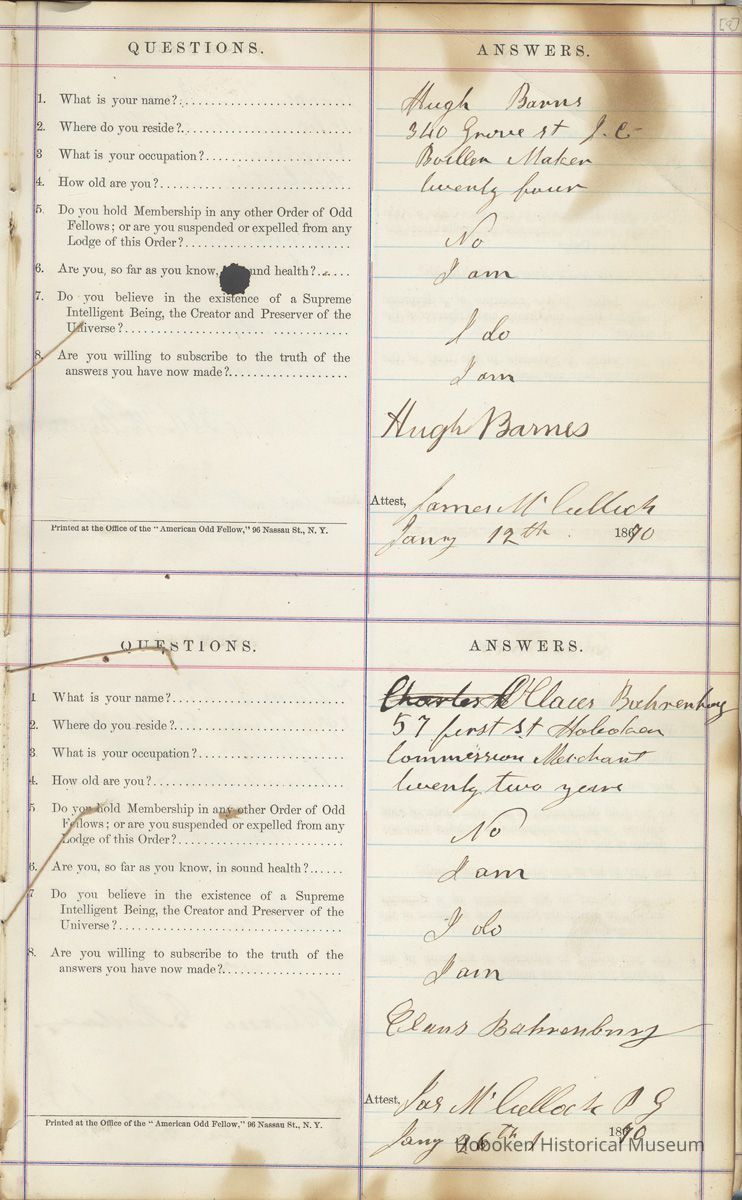 [9]
QUESTIONS.
ANSWERS.
1. What is your name?
Hugh Barns
2. Where do you reside?
340 Grove st J. C.
3 What is your occupation?
Boiller Maker
4. How old are you?
twenty four
5. Do you hold Membership in any other Order of Odd
Fellows; or are you suspended or expelled from any
Lodge of this Order?
No
6. Are you, so far as you know, und health?
I am
7. Do you believe in the existence of a Supreme
Intelligent Being, the Creator and Preserver of the
Universe?
I do
8. Are you willing to subscribe to the truth of the
answers you have now made?
I am
Hugh Barnes
Attest, James McCulloch
Printed at the Office of the "American Odd Fellow," 96 Nassau St., N. Y.
Jany 12th 1870
QUESTIONS.
ANSWERS.
1 What is your name?
Charles Claus Bahrenburg
2. Where do you reside?
57 first st Hoboken
3 What is your occupation?
Commission Merchant
4. How old are you?
twenty two years
5 Do you hold Membership in any other Order of Odd
Fellows; or are you suspended or expelled from any
Lodge of this Order?
No
6. Are you, so far as you know, in sound health?
I am
7 Do you believe in the existence of a Supreme
Intelligent Being, the Creator and Preserver of the
Universe?
I do
8. Are you willing to subscribe to the truth of the
answers you have now made?
I am
Claus Bahrenburg
Attest, Jas McCulloch P G
Printed at the Office of the "American Odd Fellow," 96 Nassau St., N. Y.
Jany 26th 1870
Hoboken Historical Museum